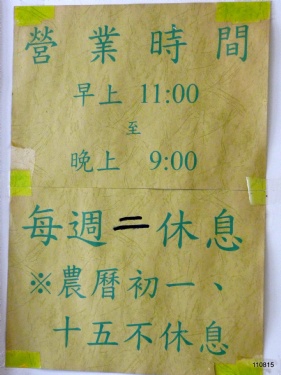 營業時間
早上 11:00
至
晚上 9:00
每週二休息
※農曆初一、
十五不休息
110815